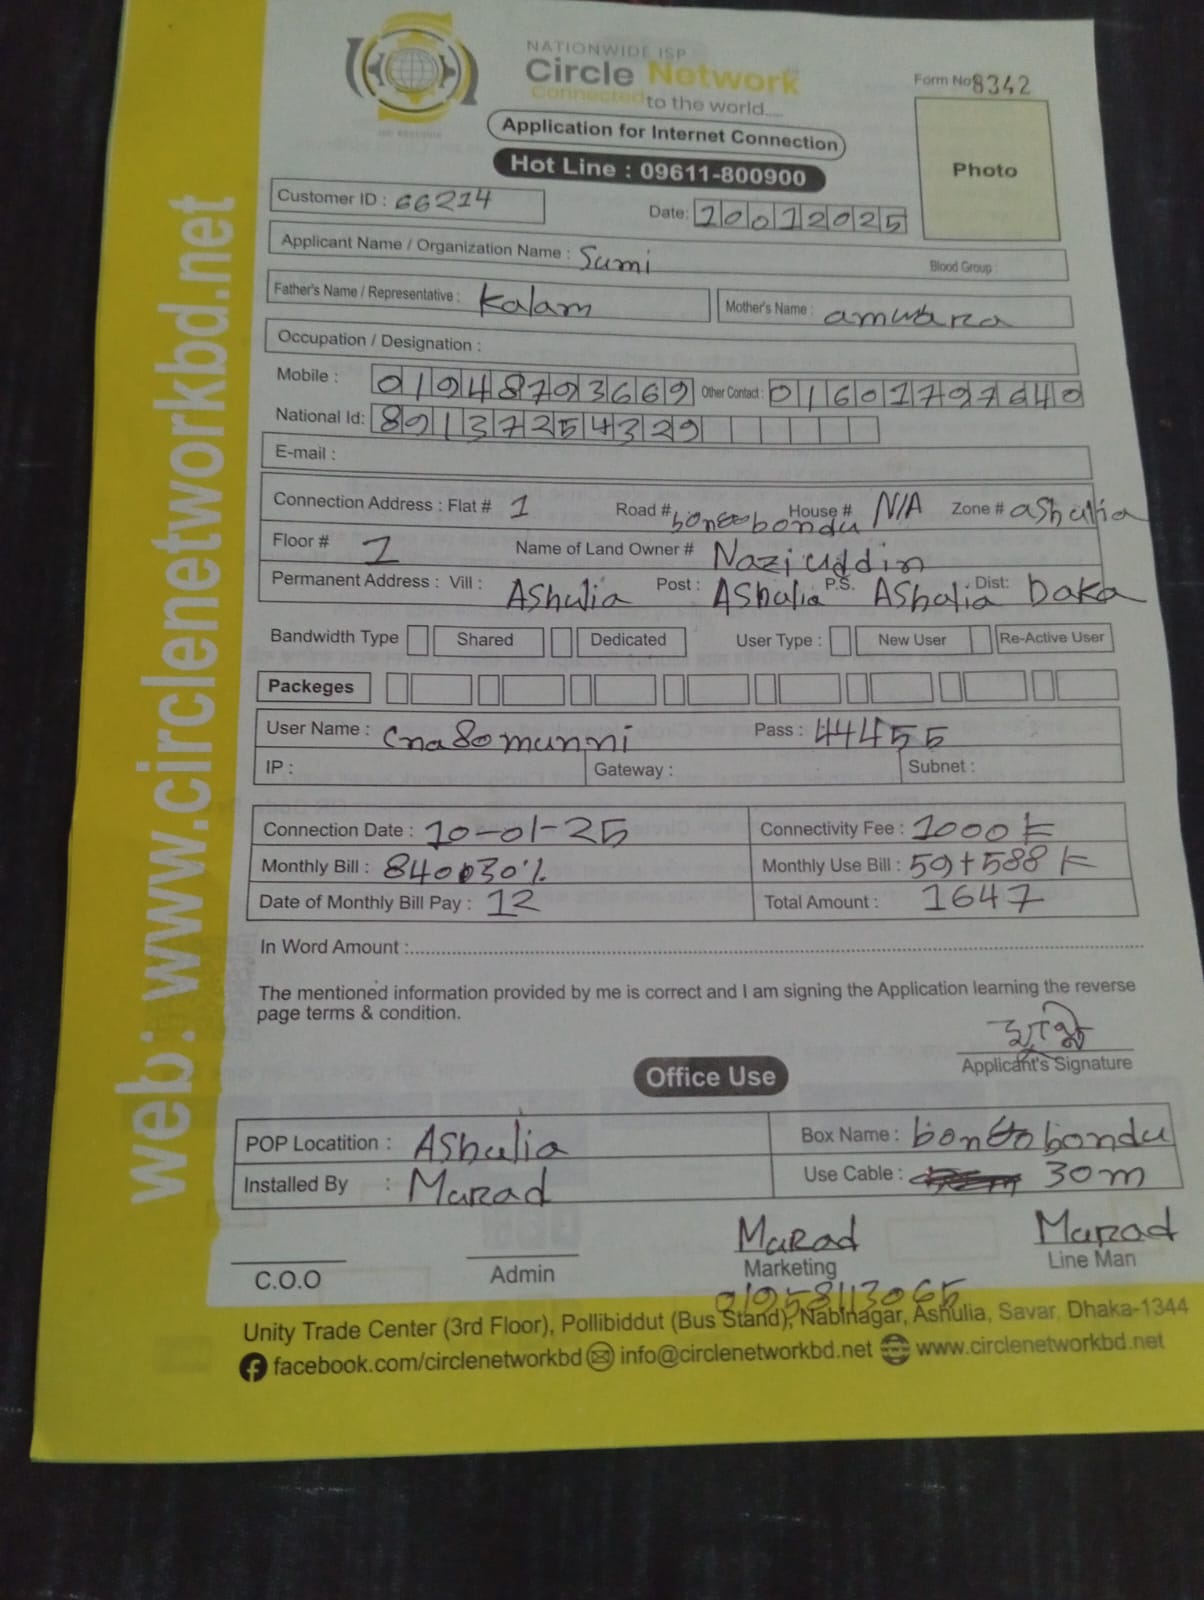 NATIONWIDE ISP
Circle Network
Connected to the world....
Form No 8342
Application for Internet Connection
Hot Line : 09611-800900
Photo
Customer ID : 66214
Date: 10012025
Applicant Name / Organization Name : Sumi
Blood Group :
Father's Name / Representative : Kalam
Mother's Name : amwara
Occupation / Designation :
Mobile : 01948793669 Other Contact : 01601797640
National Id: 89137254329
E-mail :
Connection Address : Flat # 1 Road # House # N/A Zone # ashulia
Floor # 1 Name of Land Owner # Naziuddin
Permanent Address : Vill : AShulia Post : AShulia P.S. AShalia Dist: Daka
Bandwidth Type Shared Dedicated User Type : New User Re-Active User
Packeges
User Name : cna80munni Pass : 44455
IP : Gateway : Subnet :
Connection Date : 10-01-25 Connectivity Fee : 1000
Monthly Bill : Monthly Use Bill : 59+588
Date of Monthly Bill Pay : 12 Total Amount : 1647
In Word Amount :
The mentioned information provided by me is correct and I am signing the Application learning the reverse
page terms & condition.
Applicant's Signature
Office Use
POP Locatition : AShulia Box Name :
Installed By : Murad Use Cable : 30m
Murad Murad
C.O.O Admin Marketing Line Man
Unity Trade Center (3rd Floor), Pollibiddut (Bus Stand), Nabinagar, Ashulia, Savar, Dhaka-1344
facebook.com/circlenetworkbd info@circlenetworkbd.net www.circlenetworkbd.net
web: www.circlenetworkbd.net